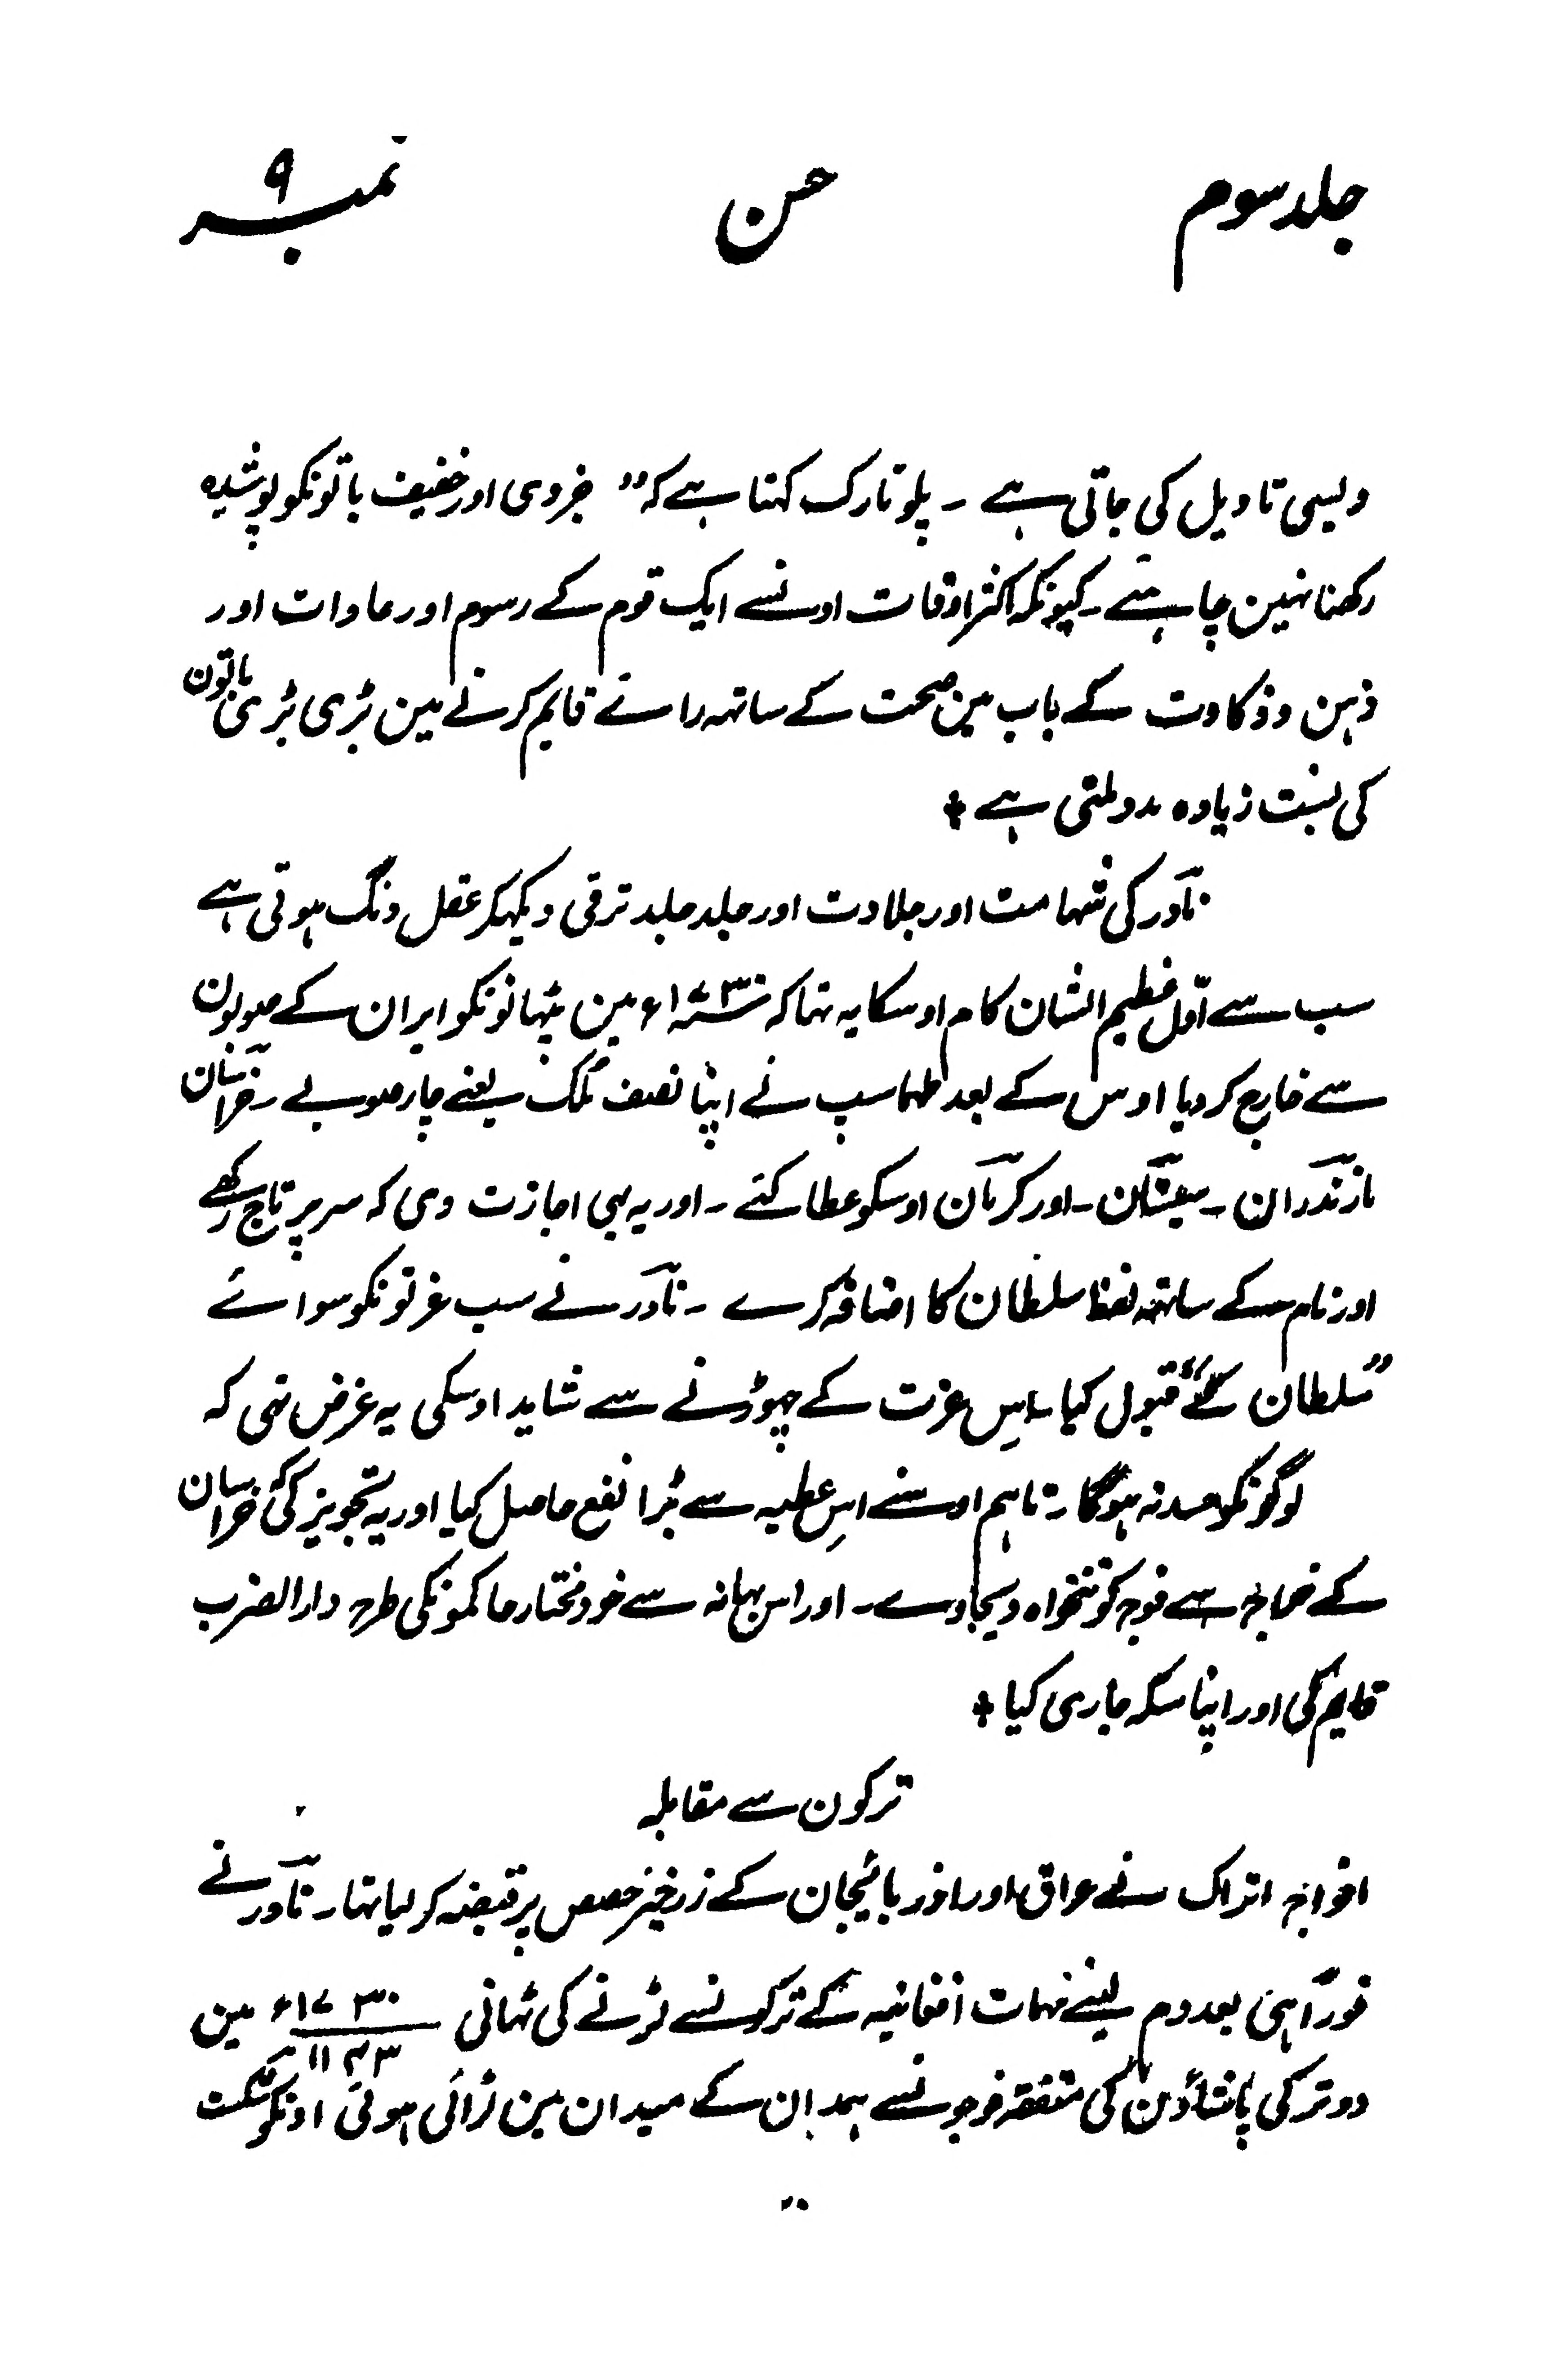 جلد سوم حسن نمبر ۹
ویسی تاویل کی جاتی ہے ۔ پلوتارک کہتا ہے کہ ” جزوی اور خفیف باتونکو پوشیدہ
رکھنا نہین چاہئے ۔ کیونکہ اکثر اوقات اونسے ایک قوم کے رسوم اور عادات اور
ذہن و ذکاوت کے باب مین صحت کے ساتہہ رائے قایم کرنے مین بڑی بڑی باتون
کی نسبت زیادہ مدد ملتی ہے +
نادر کی شہامت اور جلادت اور جلد جلد ترقی دیکہکر عقل دنگ ہوتی ہے
سب سے اوّل عظیم الشان کام اوسکا یہ تہا کہ ۱۷۳۰ء مین پٹہانونکو ایران کے صوبون
سے خارج کر دیا اوس کے بعد طہماسپ نے اپنا نصف ملک یعنے چار صوبے ۔ خراسان
مازندران ۔ سیستان ۔ اور کرمان اوسکو عطا کئے ۔ اور یہ بہی اجازت دی کہ سر پر تاج رکھے
اور نام کے ساتہہ لفظ سلطان کا اضافہ کرے ۔ نادر نے سب عزتونکو سوائے
”سلطان“ کے قبول کیا ۔ اِس عزت کے چہوڑنے سے شاید اوسکی یہ غرض تہی کہ
لوگونکو حسد نہ ہوگا ۔ تاہم اوسنے اِس عطیہ سے بڑا نفع حاصل کیا اور یہ تجویز کی کہ خراسان
کے خراج سے فوج کو تنخواہ دیجاوے ۔ اور اس بہانہ سے خود مختار حاکمونکی طرح دار الضرب
قایم کی اور اپنا سکہ جاری کیا +
ترکون سے مقابلہ
افواج اتراک نے عراق اور اذربائیجان کے زرخیز حصص پر قبضہ کر لیا تہا ۔ نادر نے
فوراً ہی بعد دم لینے مہمات افغانیہ کے ترکونسے لڑنے کی ٹہانی ۱۷۳۰ء مین
۱۱۴۳
دو ترکی پاشاؤن کی متفقہ فوجونسے ہمدان کے میدان مین لڑائی ہوئی اونکو شکست